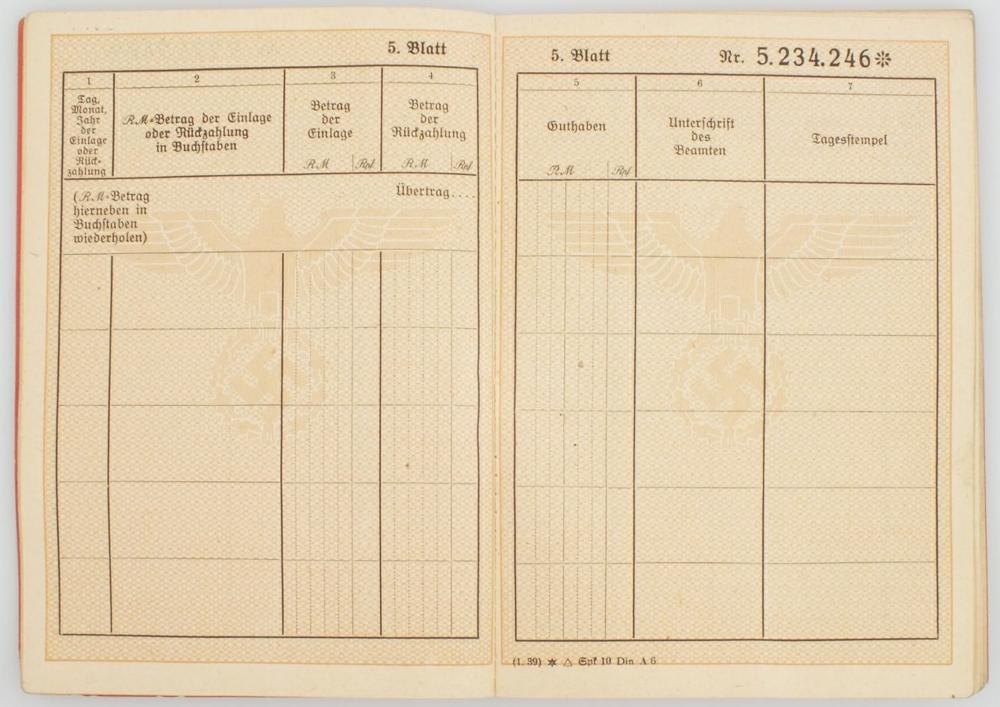 5. Blatt
1
2
3
4
Tag,
Monat,
Jahr
der
Einlage
oder
Rück-
zahlung
RM=Betrag der Einlage
oder Rückzahlung
in Buchstaben
Betrag
der
Einlage
RM Rpf
Betrag
der
Rückzahlung
RM Rpf
(RM=Betrag
hierneben in
Buchstaben
wiederholen)
Übertrag....
5. Blatt
Nr. 5.234.246*
5
6
7
Guthaben
RM Rpf
Unterschrift
des
Beamten
Tagesstempel
(1. 39) * △ Spf 10 Din A 6